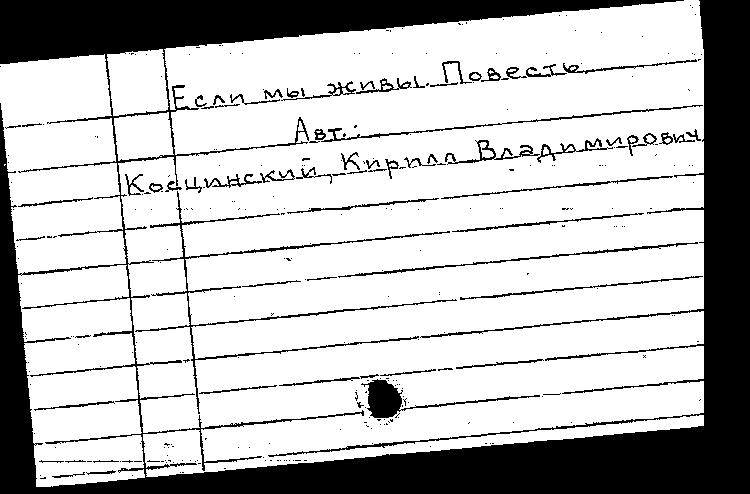 Если мы живы. Повесть.
Авт.:
Косцинский, Кирилл Владимирович